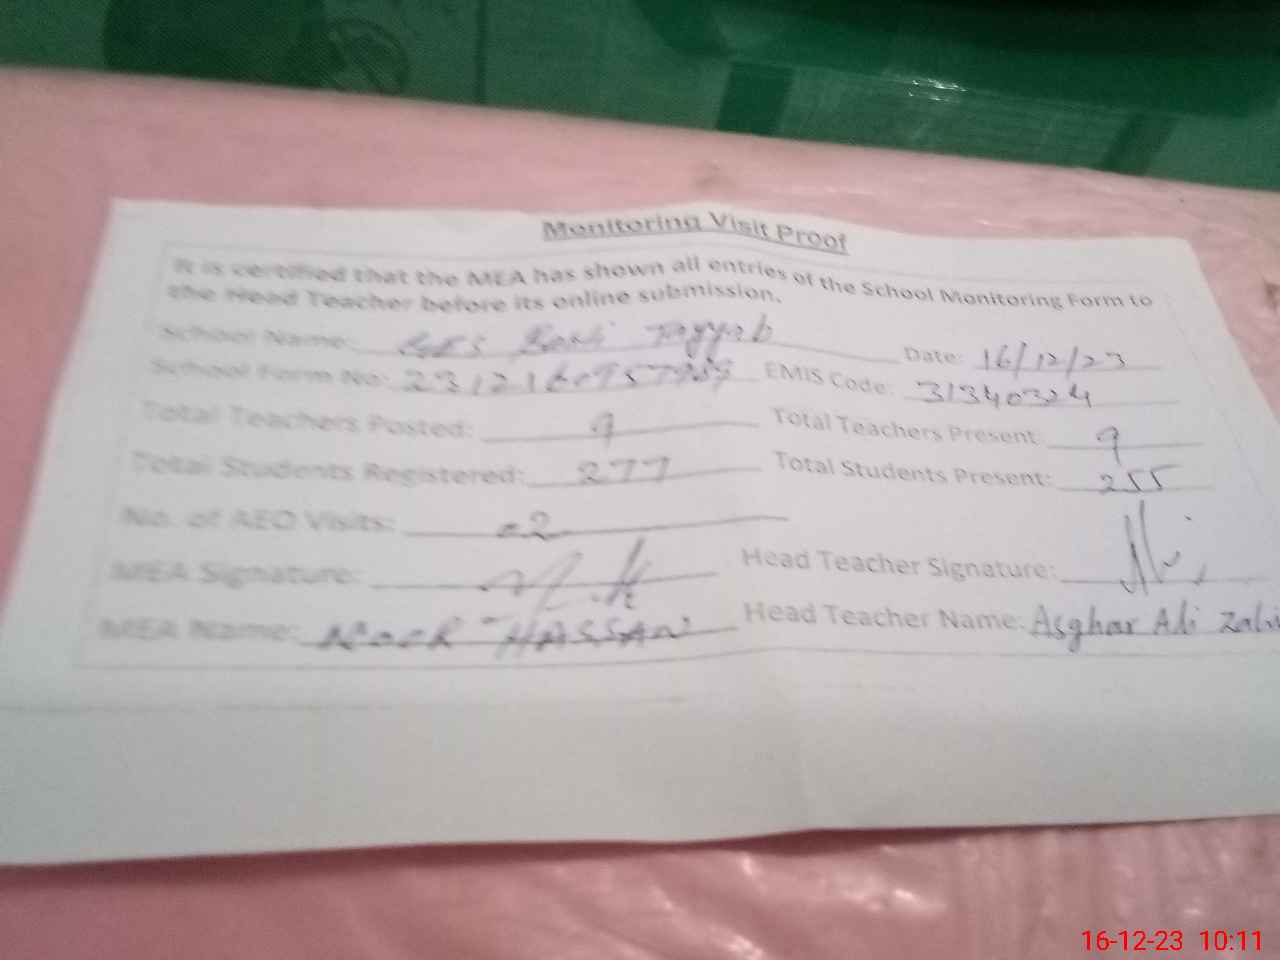 Monitoring Visit Proof
It is certified that the MEA has shown all entries of the School Monitoring Form to
the Head Teacher before its online submission.
School Name: Tayyab Date: 16/12/23
School Form No: EMIS Code: 31340324
Total Teachers Posted: 9 Total Teachers Present: 9
Total Students Registered: 277 Total Students Present: 255
No. of AEO Visits: 2
MEA Signature: Head Teacher Signature:
MEA Name: NOOR-HASSAN Head Teacher Name: Asghar Ali
16-12-23 10:11